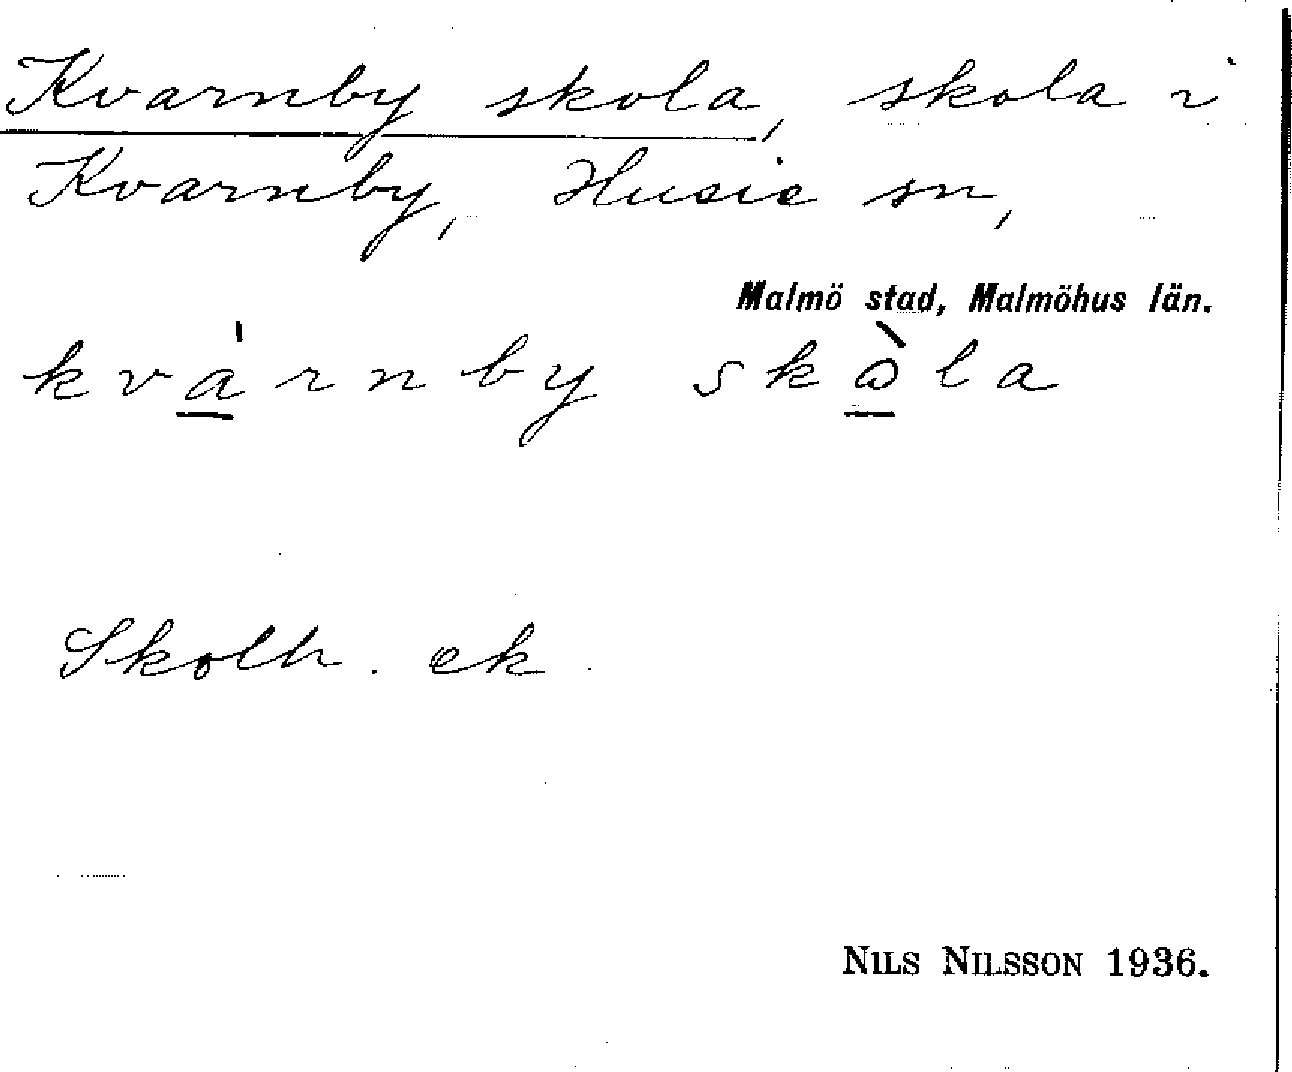 Kvarnby skola, skola i
Kvarnby, Husie sn,
Malmö stad, Malmöhus län.
kvárnby skòla
Skolh. ek.
NILS NILSSON 1936.